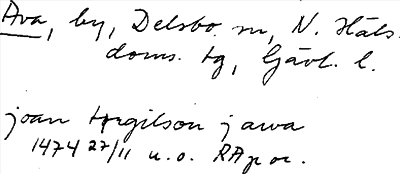 Ava, by, Delsbo sn, N. Häls.
doms. tg, Gävl. l.
joan thrgilson j awa
1474 27/11 u. o. RAp or.